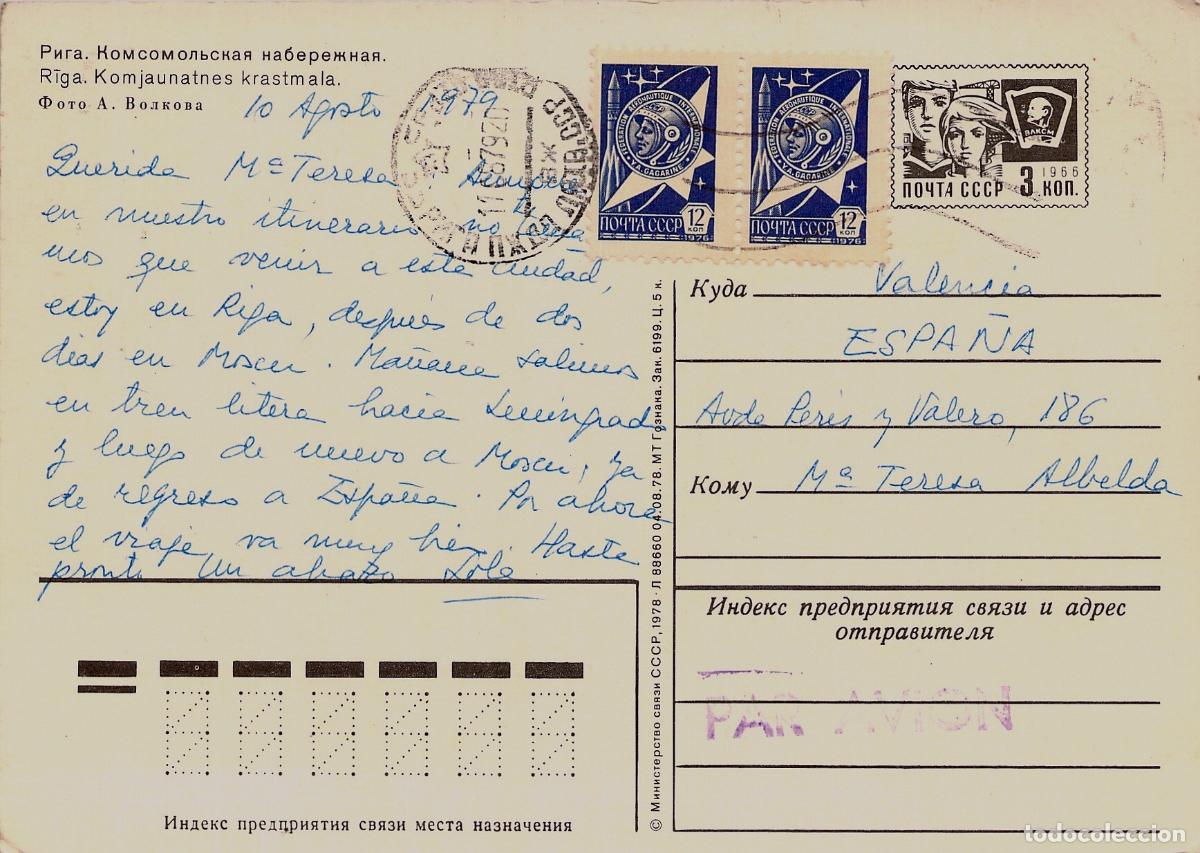 Рига. Комсомольская набережная.
Rīga. Komjaunatnes krastmala.
Фото А. Волкова
10 Agosto 1979
Querida Mª Teresa Aunque
en nuestro itinerario no tenia
mos que venir a esta ciudad,
estoy en Riga, después de dos
dias en Moscu. Mañana salimos
en tren litera hacia Leningrad
y luego de nuevo a Moscu, ya
de regreso a España. Por ahora
el viaje va muy bien. Hasta
pronto Un abrazo Lola
FEDERATION AERONAUTIQUE INTERNATIONALE
YA. GAGARINE
ПОЧТА СССР 12 коп
1976
FEDERATION AERONAUTIQUE INTERNATIONALE
YA. GAGARINE
ПОЧТА СССР 12 коп
1976
ВЛКСМ
1966
ПОЧТА СССР 3 КОП.
Куда Valencia
ESPAÑA
Avda Peris y Valero, 186
Кому Mª Teresa Albelda
Индекс предприятия связи и адрес
отправителя
PAR AVION
© Министерство связи СССР, 1978 · Л 88660 04.08.78. МТ Гознака. Зак. 6199. Ц. 5 к.
Индекс предприятия связи места назначения
todocoleccion